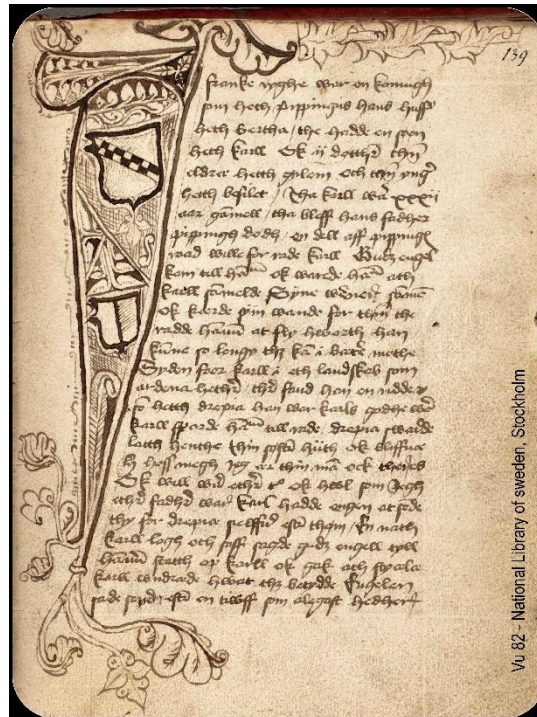 139
franke righe war en konungh
som heth pippingus hans husf
heth bertha / the hadde en son
heth karll Ok ij dotther thn
eldre hetth gilem och thn yngre
hetth besilet / Tha karll war xxxij
aar gamell / tha bleff hans fadher
pippingh dodh / en dell aff pippings
raad wille for rade karll Gudz engel
kom till ham ok warade ham ath
karll samelde Syne wener samen
ok kerde syn wande for thm the
radde ham at fly heborth han
kune so lenge
Sydon foor karll i eth landskab som
ardena hether / ther fand han en ridder
som hetth drepia han war karls godhe wen
karll sporde ham till rade, drepia swarde
latth henthe thin soster hiith ok bliffue
Ok will wid ok hwl som Jegh
ether fadher war karl hadde engen at sende
thy for drepia sielffuer efter them / En nath
karll lagh och soff sagde gudz engell tyll
ham statth op karll ok gak ath stiæle
karll wndrade hwat thz betydde Engelen
sade en tiwff som alzgost hedher
Vu 82 - National Library of sweden, Stockholm